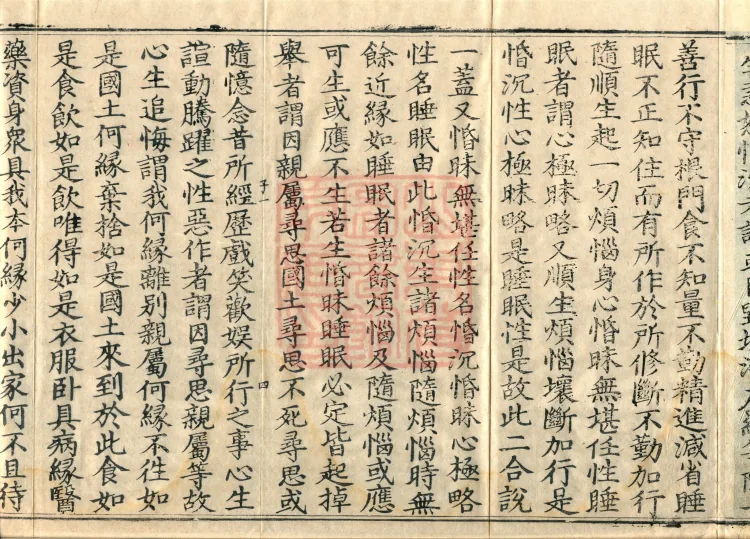 善行不守根門食不知量不勤精進減省睡
眠不正知住而有所作於所修斷不勤加行
隨順生起一切煩惱身心惛昧無堪任性睡
眠者謂心極昧略又順生煩惱壞斷加行是
惛沉性心極昧略是睡眠性是故此二合說
一蓋又惛昧無堪任性名惛沉惛昧心極略
性名睡眠由此惛沉生諸煩惱隨煩惱時無
餘近緣如睡眠者諸餘煩惱及隨煩惱或應
可生或應不生若生惛昧睡眠必定皆起掉
舉者謂因親屬尋思國土尋思不死尋思或
隨憶念昔所經歷戲笑歡娛所行之事心生
諠動騰躍之性惡作者謂因尋思親屬等故
心生追悔謂我何緣離別親屬何緣不往如
是國土何緣棄捨如是國土來到於此食如
是食飲如是飲唯得如是衣服臥具病緣醫
藥資身眾具我本何緣少小出家何不且待